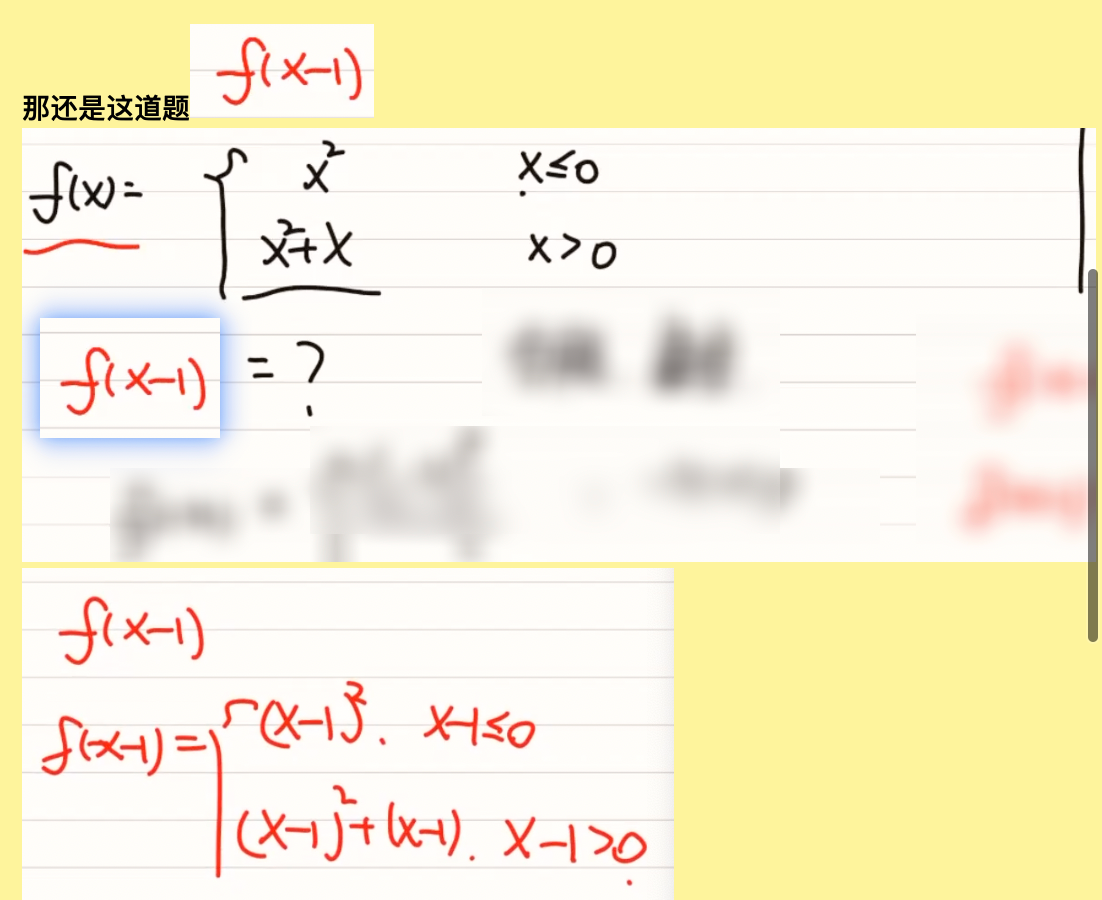 f(x-1)
那还是这道题
f(x)= { x² x≤0
x²+x x>0
f(x-1) = ?
f(x-1)
f(x-1)= { (x-1)². x-1≤0
(x-1)²+(x-1). x-1>0